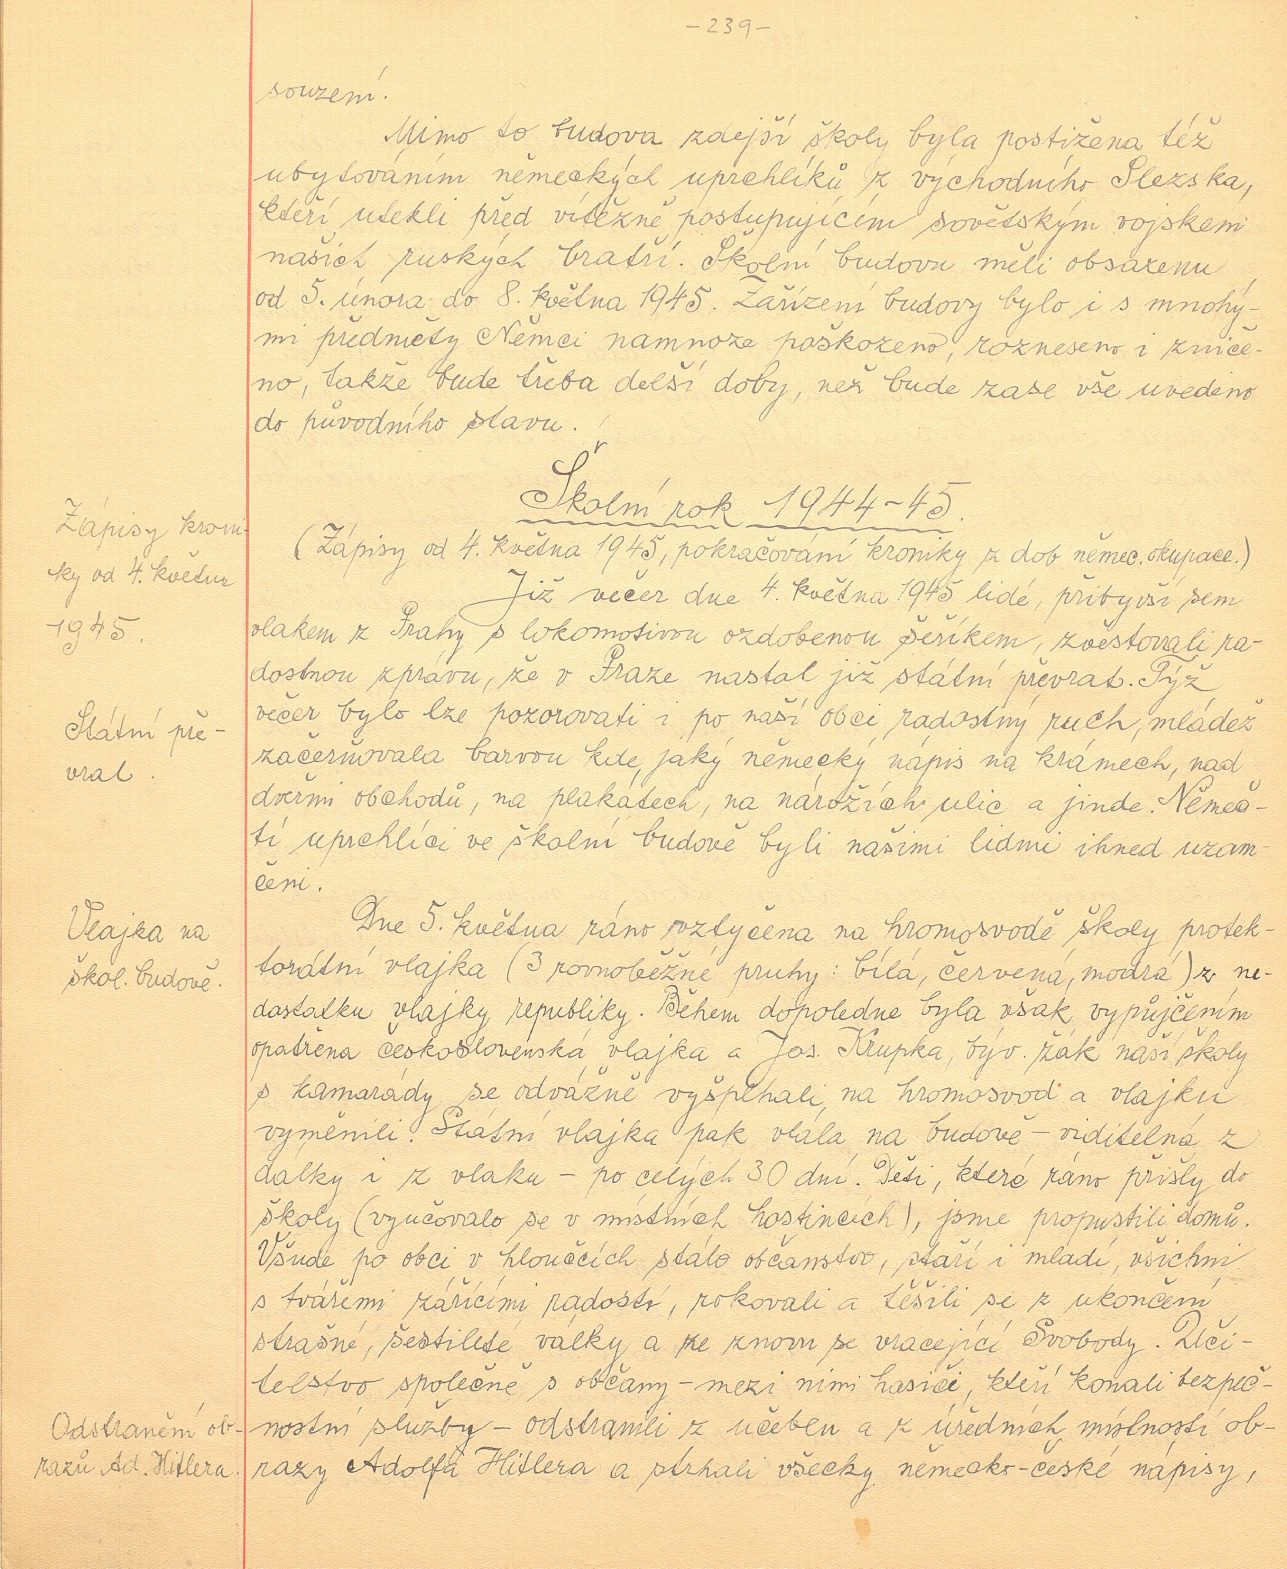 -239-
souzení.
Mimo to budova zdejší školy byla postižena též
ubytováním německých uprchlíků z východního Slezska,
kteří utekli před vítězně postupujícím sovětským vojskem
našich ruských bratří. Školní budovu měli obsazenu
od 5. února do 8. května 1945. Zařízení budovy bylo i s mnohý-
mi předměty Němci namnoze poškozeno, rozneseno i zniče-
no, takže bude třeba delší doby, než bude zase vše uvedeno
do původního stavu.
Školní rok 1944-45.
Zápisy kroni-
ky od 4. května
1945.
(Zápisy od 4. května 1945, pokračování kroniky z dob němec. okupace.)
Již večer dne 4. května 1945 lidé, přibyvší sem
vlakem z Prahy s lokomotivou ozdobenou šeříkem, zvěstovali ra-
dostnou zprávu, že v Praze nastal již státní převrat. Týž
Státní pře-
vrat.
večer bylo lze pozorovati i po naší obci radostný ruch, mládež
začerňovala barvou kde jaký německý nápis na krámech, nad
dveřmi obchodů, na plakátech, na nárožích ulic a jinde. Němeč-
tí uprchlíci ve školní budově byli našimi lidmi ihned uzam-
čeni.
Vlajka na
škol. budově.
Dne 5. května ráno vztyčena na hromosvodě školy protek-
torátní vlajka (3 rovnoběžné pruhy: bílá, červená, modrá) z ne-
dostatku vlajky republiky. Během dopoledne byla však vypůjčením
opatřena československá vlajka a Jos. Krupka, býv. žák naší školy
s kamarády se odvážně vyšplhali na hromosvod a vlajku
vyměnili. Státní vlajka pak vlála na budově - viditelná z
dálky i z vlaku - po celých 30 dní. Děti, které ráno přišly do
školy (vyučovalo se v místních hostincích), jsme propustili domů.
Všude po obci v hloučcích stálo občanstvo, staří i mladí, všichni
s tvářemi zářícími radostí, rokovali a těšili se z ukončení
strašné, šestileté války a ze znovu se vracející Svobody. Uči-
telstvo společně s občany - mezi nimi hasiči, kteří konali bezpeč-
Odstranění ob-
razů Ad. Hitlera.
nostní služby - odstranili z učeben a z úředních místností ob-
razy Adolfa Hitlera a strhali všecky německo-české nápisy,